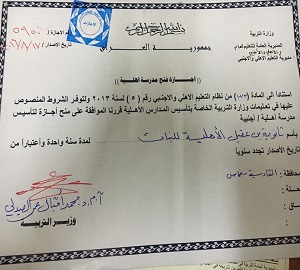 بسم الله الرحمن الرحيم
جمهورية العراق
وزارة التربية
المديرية العامة للتعليم العام
مديرية التعليم الاهلي والاجنبي
رقم الاجازة /
تاريخ الاصدار /
(( اجازة فتح مدرسة اهلية ))
استناداً الى المادة من نظام التعليم الاهلي والاجنبي رقم ( ٥ ) لسنة ٢٠١٣ ولتوفر الشروط المنصوص
عليها في تعليمات وزارة التربية الخاصة بتأسيس المدارس الاهلية قررنا الموافقة على منح اجازة لتأسيس
مدرسة اهلية / اجنبية
باسم ثانوية بن عقيل الأهلية للبنات لمدة سنة واحدة واعتباراً من
تاريخ الاصدار تجدد سنوياً
محافظة : القادسية
أ.م.د. محمد اقبال عمر الصيدلي
وزير التربية